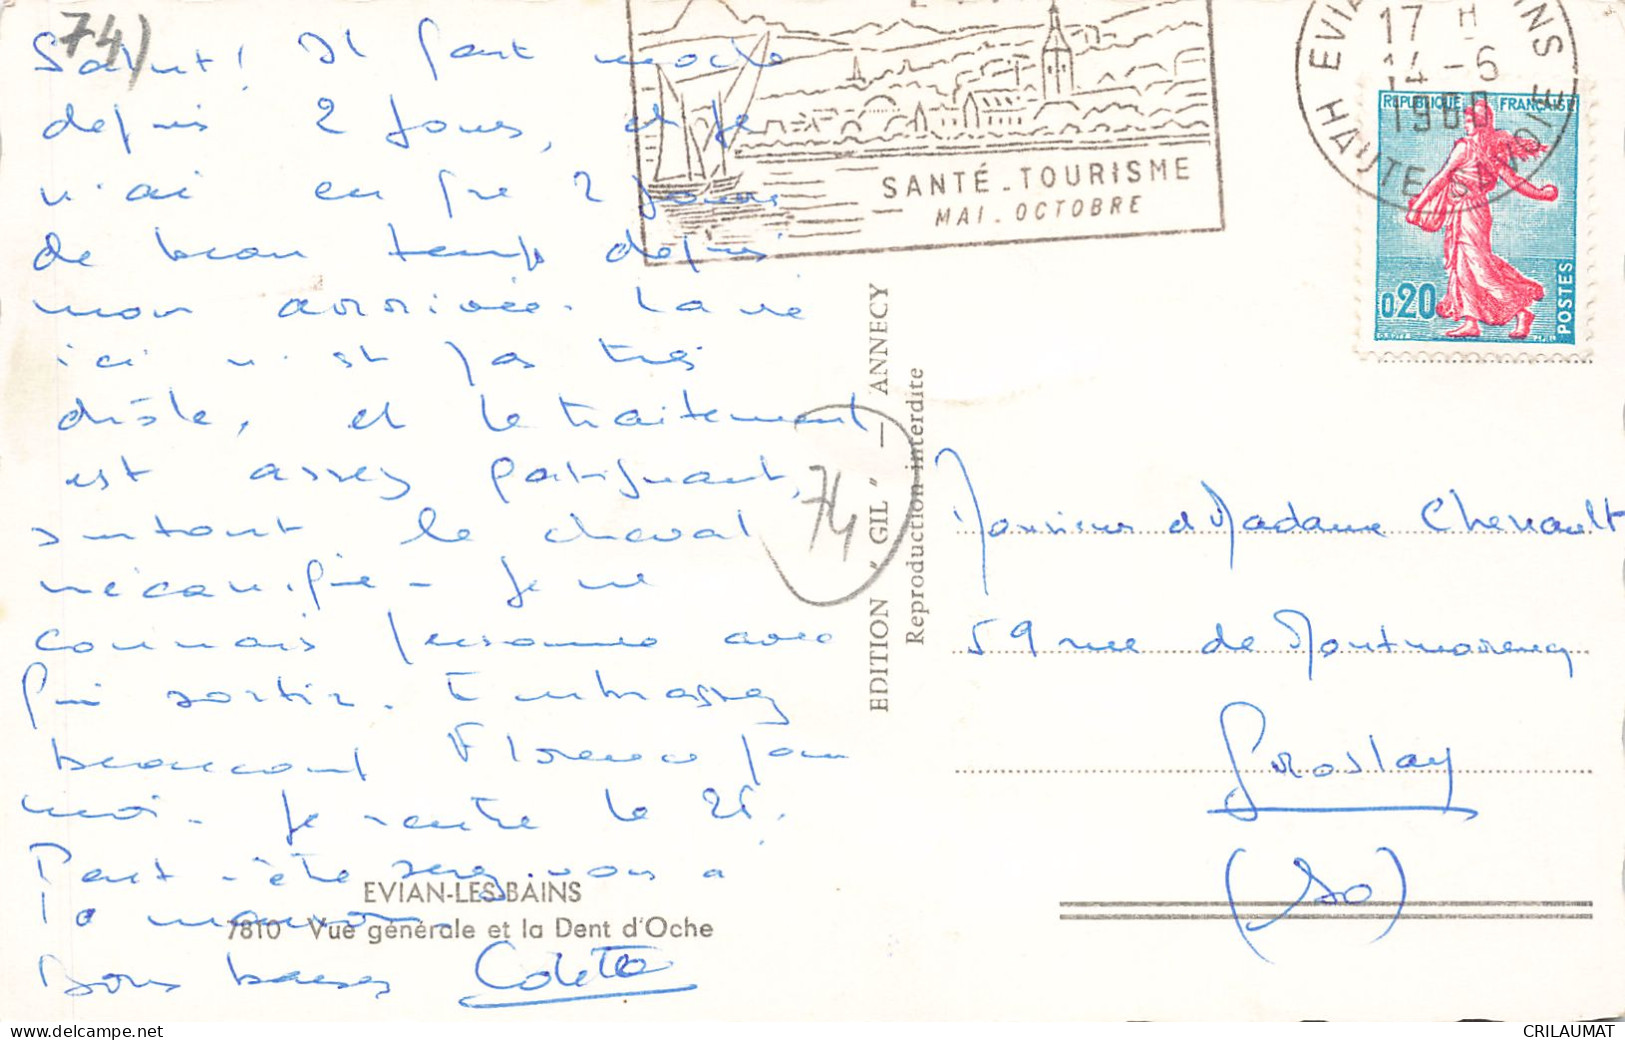 74)
Salut ! Il fait moche
depuis 2 jours, et je
n'ai eu que 2 jours
de beau temps depuis
mon arrivée. La vie
ici n'est pas très
drôle, et le traitement
est assez fatiguant,
surtout le cheval
mécanique - Je ne
connais personne avec
qui sortir. Embrassez
beaucoup Florence pour
moi - Je rentre le 25.
Peut-être serez-vous à
la maison
Bons baisers Colette
EVIAN-LES-BAINS
7810 Vue générale et la Dent d'Oche
SANTÉ - TOURISME
MAI - OCTOBRE
17 H
14 - 6
1960
HAUTE SAVOIE
REPUBLIQUE FRANÇAISE
0,20
POSTES
EDITION " GIL " — ANNECY
Reproduction interdite
74
Monsieur et Madame Chenault
59 rue de Montmorency
Groslay
(SO)
www.delcampe.net
CRILAUMAT